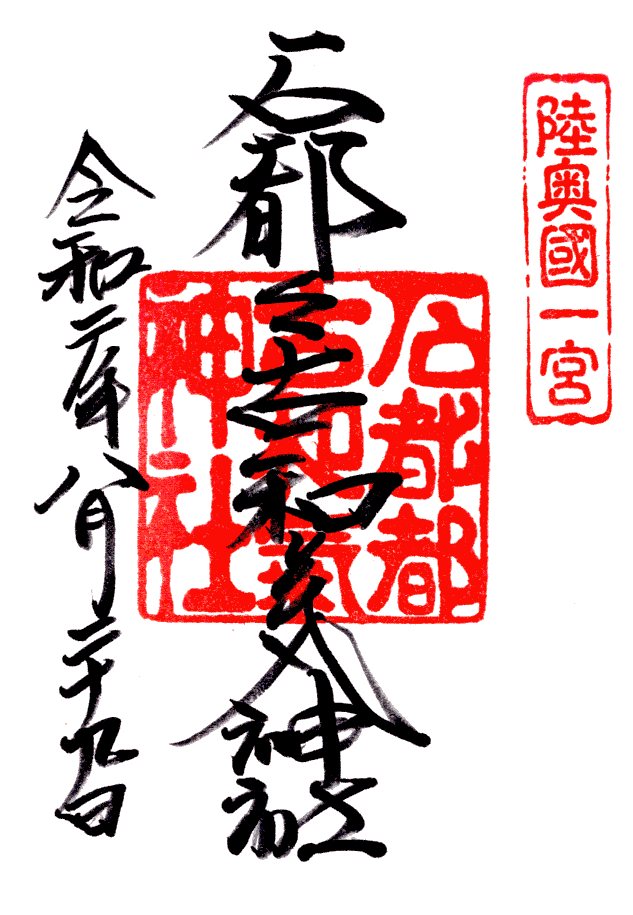 陸奥國一宮
石都々古和気神社
石都都
古和氣
神社
令和二年八月二十九日